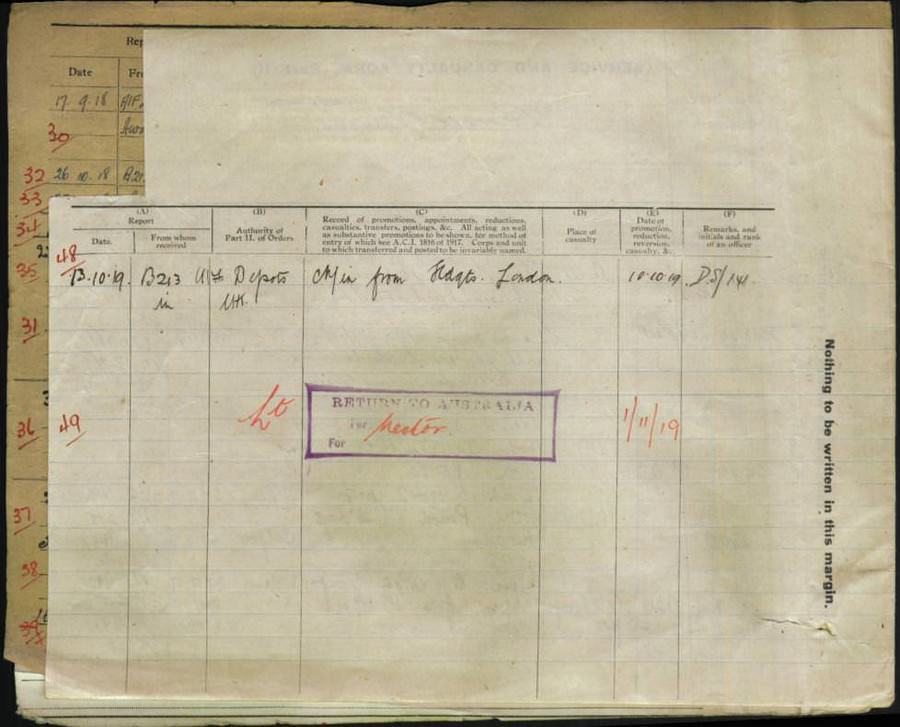 Rep
Date Fr
17.9.18 AIF.
30
32 26 10.18 B21
33
34
35
31
36
37
38
39
(A) (B) (C) (D) (E) (F)
Report
Date. From whom received
Authority of Part II. of Orders
Record of promotions, appointments, reductions,
casualties, transfers, postings, &c. All acting as well
as substantive promotions to be shown, for method of
entry of which see A.C.I. 1816 of 1917. Corps and unit
to which transferred and posted to be invariably named.
Place of casualty
Date of promotion, reduction, reversion, casualty, &c.
Remarks, and initials and rank of an officer
48
13.10.19. B213 Depots from Hdqts. London. 10.10.19. DS/141
in UK.
49 RETURN TO AUSTRALIA 1/11/19
Per Nestor
For
Nothing to be written in this margin.